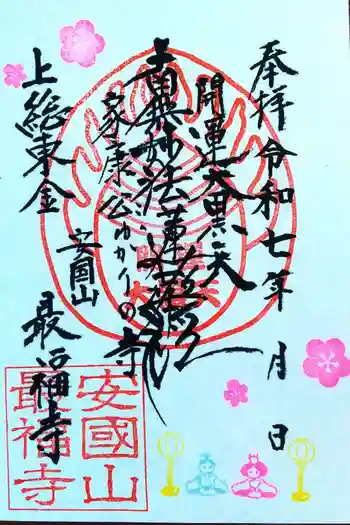 奉拝 令和七年 月 日
開運大黒天
南無妙法蓮華経
家康公ゆかりの寺
上総東金
安国山
最福寺
安國山
最福寺